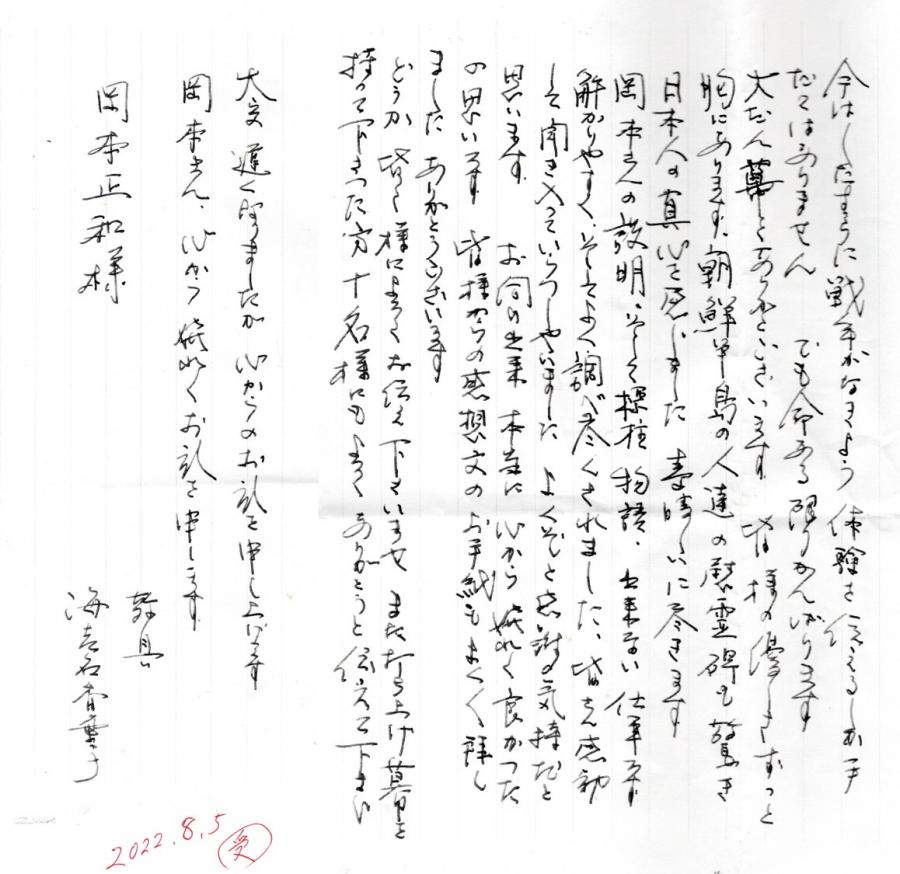 今はしたすらに戦争がなきよう 体験を伝えるしか手
だてはありません でも命ある限りがんばります
大だん幕とありがとうございます 皆様の優しさずっと
胸にあります、朝鮮半島の人達の慰霊碑も驚き
日本人の真心を感じました 素晴しいに尽きます
岡本さんの説明、そして標柱物語、出来ない仕事です
解かりやすく、そしてよく調べ尽くされました、皆さん感動
して聞き入っていらっしやいました よくぞと感謝の気持だと
思います 出来 本当に心から嬉れく良かった
の思いです 皆様からの感想文のお手紙もよくよく拝し
ました ありがとうございます
どうか皆々様によろしくお伝え下さいませ また打ち上げ幕を
持って下さった方十名様にもよろしくありがとうと伝えて下さい
大変遅くなりましたが 心からのお礼を申し上げます
岡本さん、心から嬉れくお礼を申します
敬具
岡本正和様
海老名香葉子
2022.8.5 受